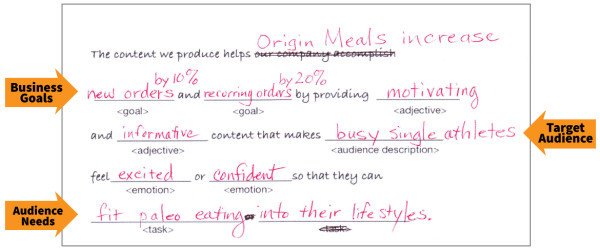 Origin Meals increase
The content we produce helps our company accomplish
by 10% by 20%
Business Goals new orders and recurring orders by providing motivating
<goal> <goal> <adjective>
and informative content that makes busy single athletes Target Audience
<adjective> <audience description>
feel excited or confident so that they can
<emotion> <emotion>
Audience Needs fit paleo eating into their lifestyles.
<task> <task>